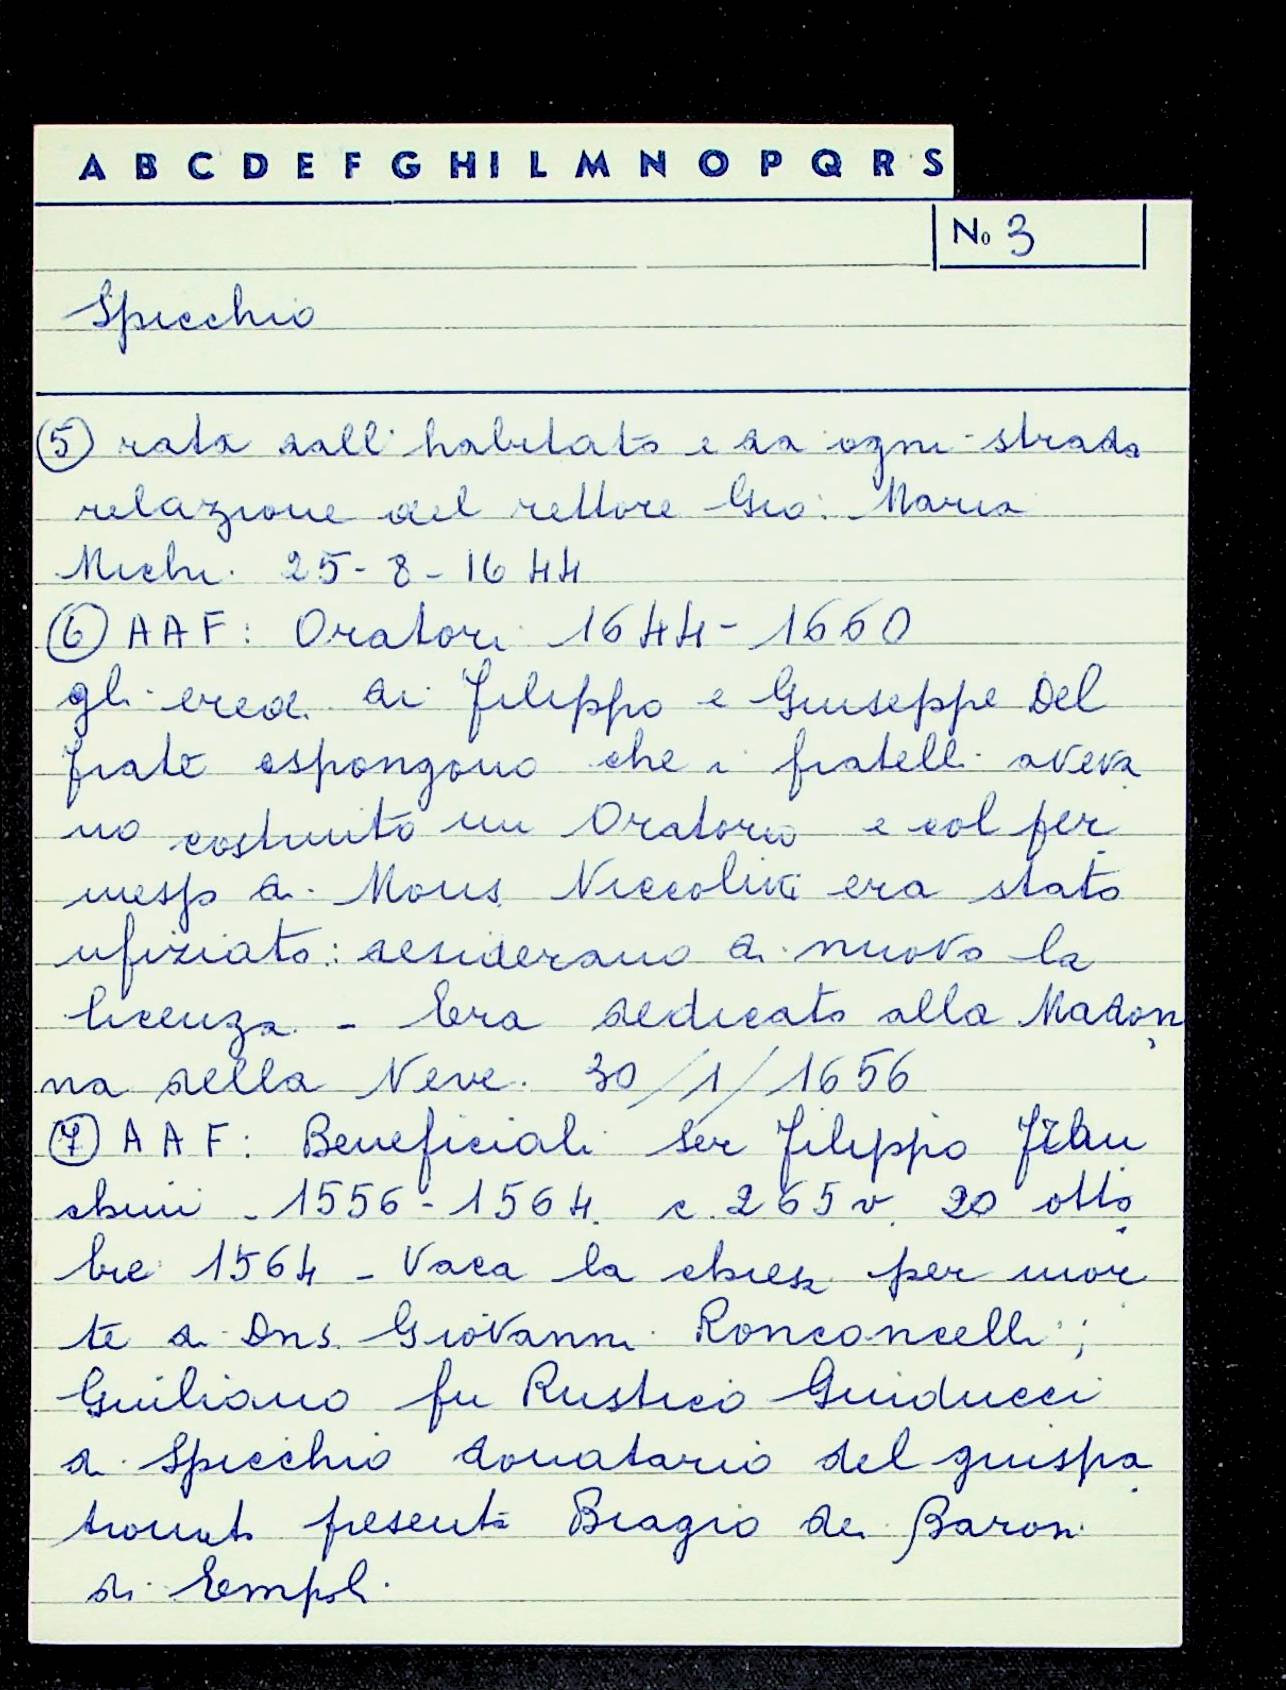 A B C D E F G H I L M N O P Q R S
No 3
Specchio
(5) rata dall'habitato e da ogni strada
relazione del rettore Gio: Maria
Michi. 25-8-1644
(6) A A F: Oratori 1644-1660
gli eredi di Filippo e Giuseppe Del
frate espongono che i fratelli aveva
no costruito un Oratorio e col per
messo di Mons. Niccolini era stato
ufiziato: desiderano di nuovo la
licenza - Era dedicato alla Madon
na della Neve. 30/1/1656
(7) A A F: Beneficiali ser Filippo
chini - 1556-1564. c. 265v. 20 otto
bre 1564 - Vaca la chiesa per mor
te di Dns. Giovanni Ronconcelli;
Guiliano fu Rustico Guiducci
di Specchio donatario del giuspa
tronato presenta Biagio dei Baroni
di Empoli.